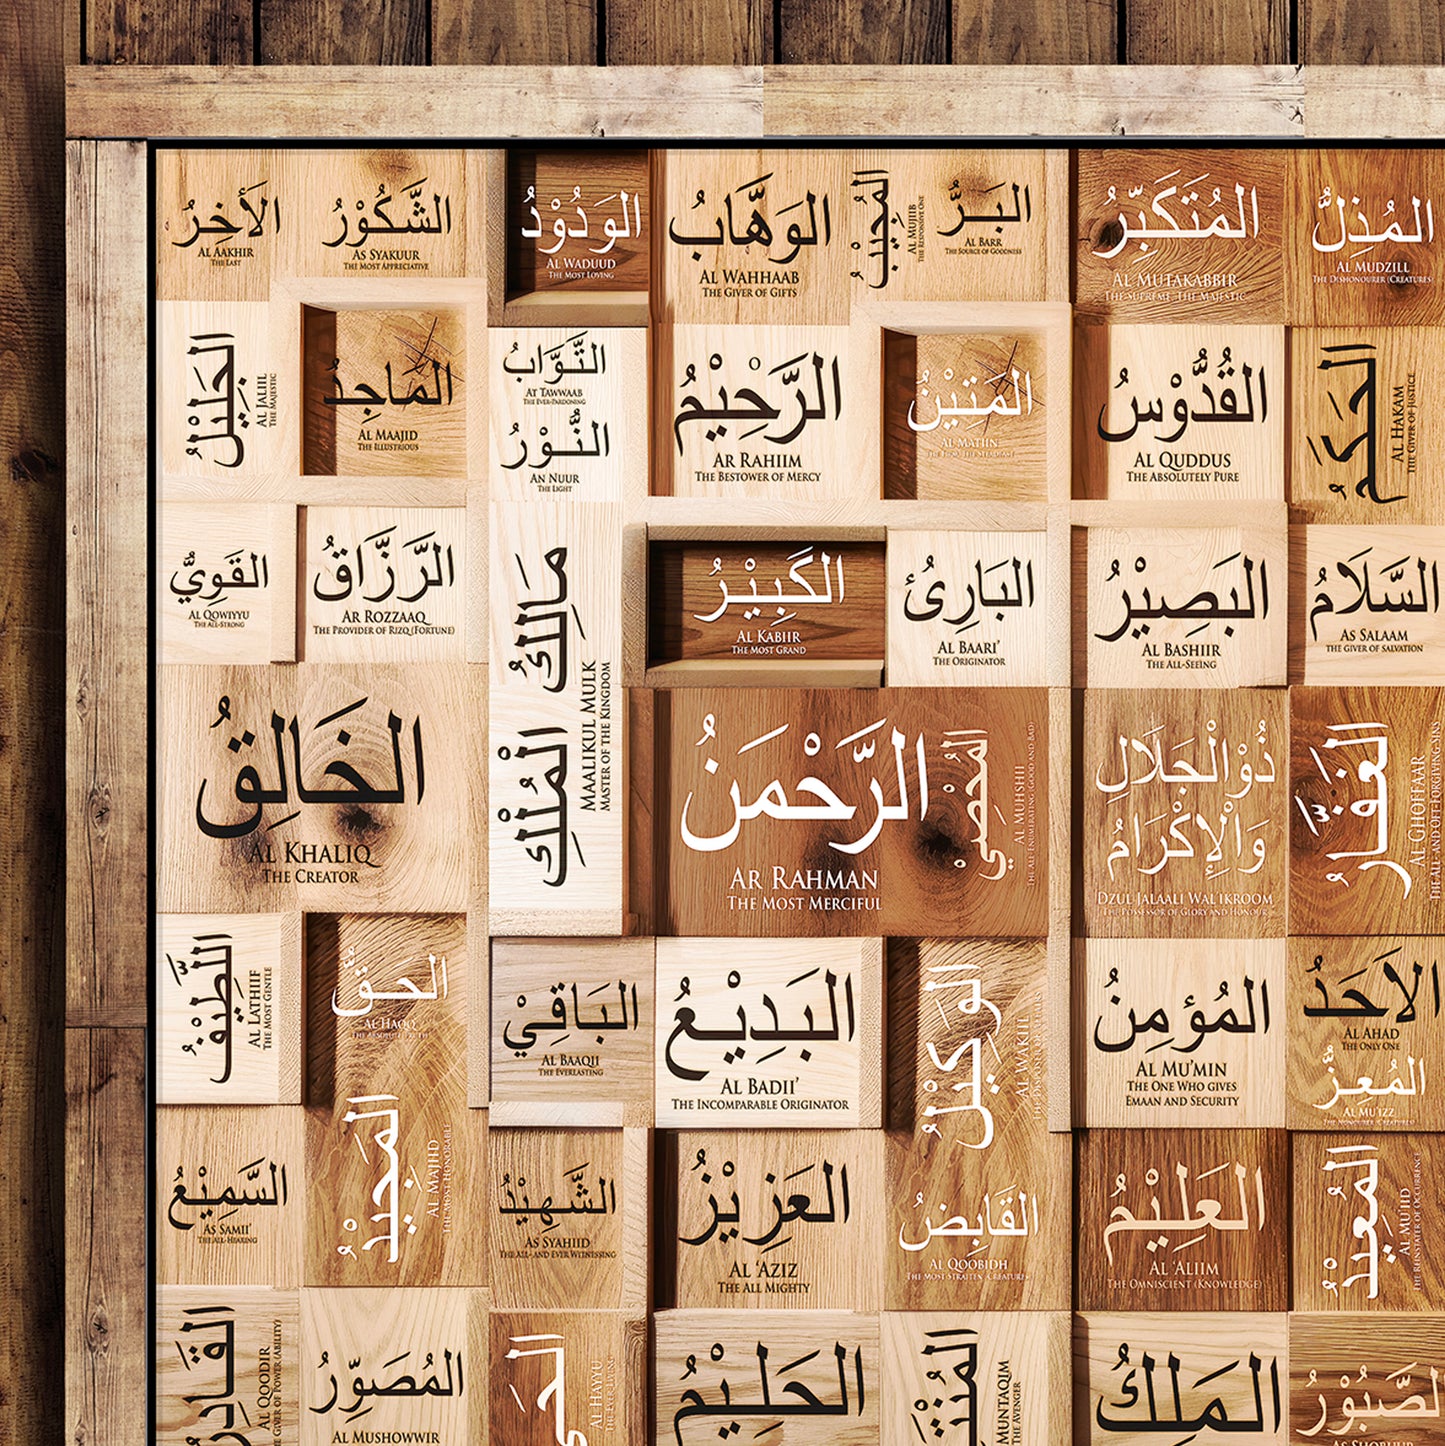 الأَخِرُ
AL AAKHIR
THE LAST
الشَّكُوْرُ
AS SYAKUUR
THE MOST APPRECIATIVE
الوَدُوْدُ
AL WADUUD
THE MOST LOVING
الوَهَّابُ
AL WAHHAAB
THE GIVER OF GIFTS
المُجِيْبُ
AL MUJIIB
THE RESPONSIVE ONE
البَـرُّ
AL BARR
THE SOURCE OF GOODNESS
المُتَكَبِّرُ
AL MUTAKABBIR
THE SUPREME, THE MAJESTIC
المُذِلُّ
AL MUDZILL
THE DISHONOURER (CREATURES)
الجَلِيْلُ
AL JALIL
THE MAJESTIC
المَاجِدُ
AL MAAJID
THE ILLUSTRIOUS
التَّوَّابُ
AT TAWWAAB
THE EVER-PARDONING
النُّـوْرُ
AN NUUR
THE LIGHT
الرَّحِيْمُ
AR RAHIIM
THE BESTOWER OF MERCY
المَتِيْنُ
AL MATIIN
القُدُّوْسُ
AL QUDDUS
THE ABSOLUTELY PURE
الحَكَمُ
AL HAKAM
THE GIVER OF JUSTICE
القَوِيُّ
AL QOWIYYU
THE ALL-STRONG
الرَّزَّاقُ
AR ROZZAAQ
THE PROVIDER OF RIZQ (FORTUNE)
مَـالِكُ الْمُلْكِ
MAALIKUL MULK
MASTER OF THE KINGDOM
الكَبِيْـرُ
AL KABIIR
THE MOST GRAND
البَارِئُ
AL BAARI’
THE ORIGINATOR
البَصِيْرُ
AL BASHIIR
THE ALL-SEEING
السَّلَامُ
AS SALAAM
THE GIVER OF SALVATION
الخَالِقُ
AL KHALIQ
THE CREATOR
الرَّحْمَنُ
AR RAHMAN
THE MOST MERCIFUL
المُحْصِيْ
AL MUHSHII
THE ALL-ENUMERATING (GOOD AND BAD)
ذُوْالْجَلَالِ
وَالْإِكْرَامُ
DZUL JALAALI WAL IKROOM
THE POSSESSOR OF GLORY AND HONOUR
الغَفَّـارُ
AL GHOFFAAR
THE ALL- AND OFT-FORGIVING SINS
اللَّطِيْفُ
AL LATHIIF
THE MOST GENTLE
الحَـقُّ
AL HAQQ
THE ABSOLUTE TRUTH
البَـاقِيْ
AL BAAQII
THE EVERLASTING
البَـدِيْـعُ
AL BADII’
THE INCOMPARABLE ORIGINATOR
الوَكِيْلُ
AL WAKIIL
المُؤمِنُ
AL MU’MIN
THE ONE WHO GIVES
EMAAN AND SECURITY
الأَحَدُ
AL AHAD
THE ONLY ONE
المُعِـزُّ
AL MU’IZZ
THE HONOURER (CREATURES)
السَّمِيْعُ
AS SAMII’
THE ALL-HEARING
المَجِيْدُ
AL MAJIID
THE MOST HONORABLE
الشَّهِيْدُ
AS SYAHIID
THE ALL- AND EVER WITNESSING
العَزِيْزُ
AL ‘AZIZ
THE ALL MIGHTY
القَابِضُ
AL QOOBIDH
العَلِيْمُ
AL ‘ALIIM
THE OMNISCIENT (KNOWLEDGE)
المُعِيْدُ
AL MU’IID
THE REINSTATER OF OCCURRENCE
القَـادِرُ
AL QOODIR
المُصَوِّرُ
AL MUSHOWWIR
الحَيُّ
AL HAYYU
THE EVER LIVING
الحَلِيْـمُ
المُنْتَقِمُ
MUNTAQIM
THE AVENGER
المَلِكُ
الصَّبُوْرُ